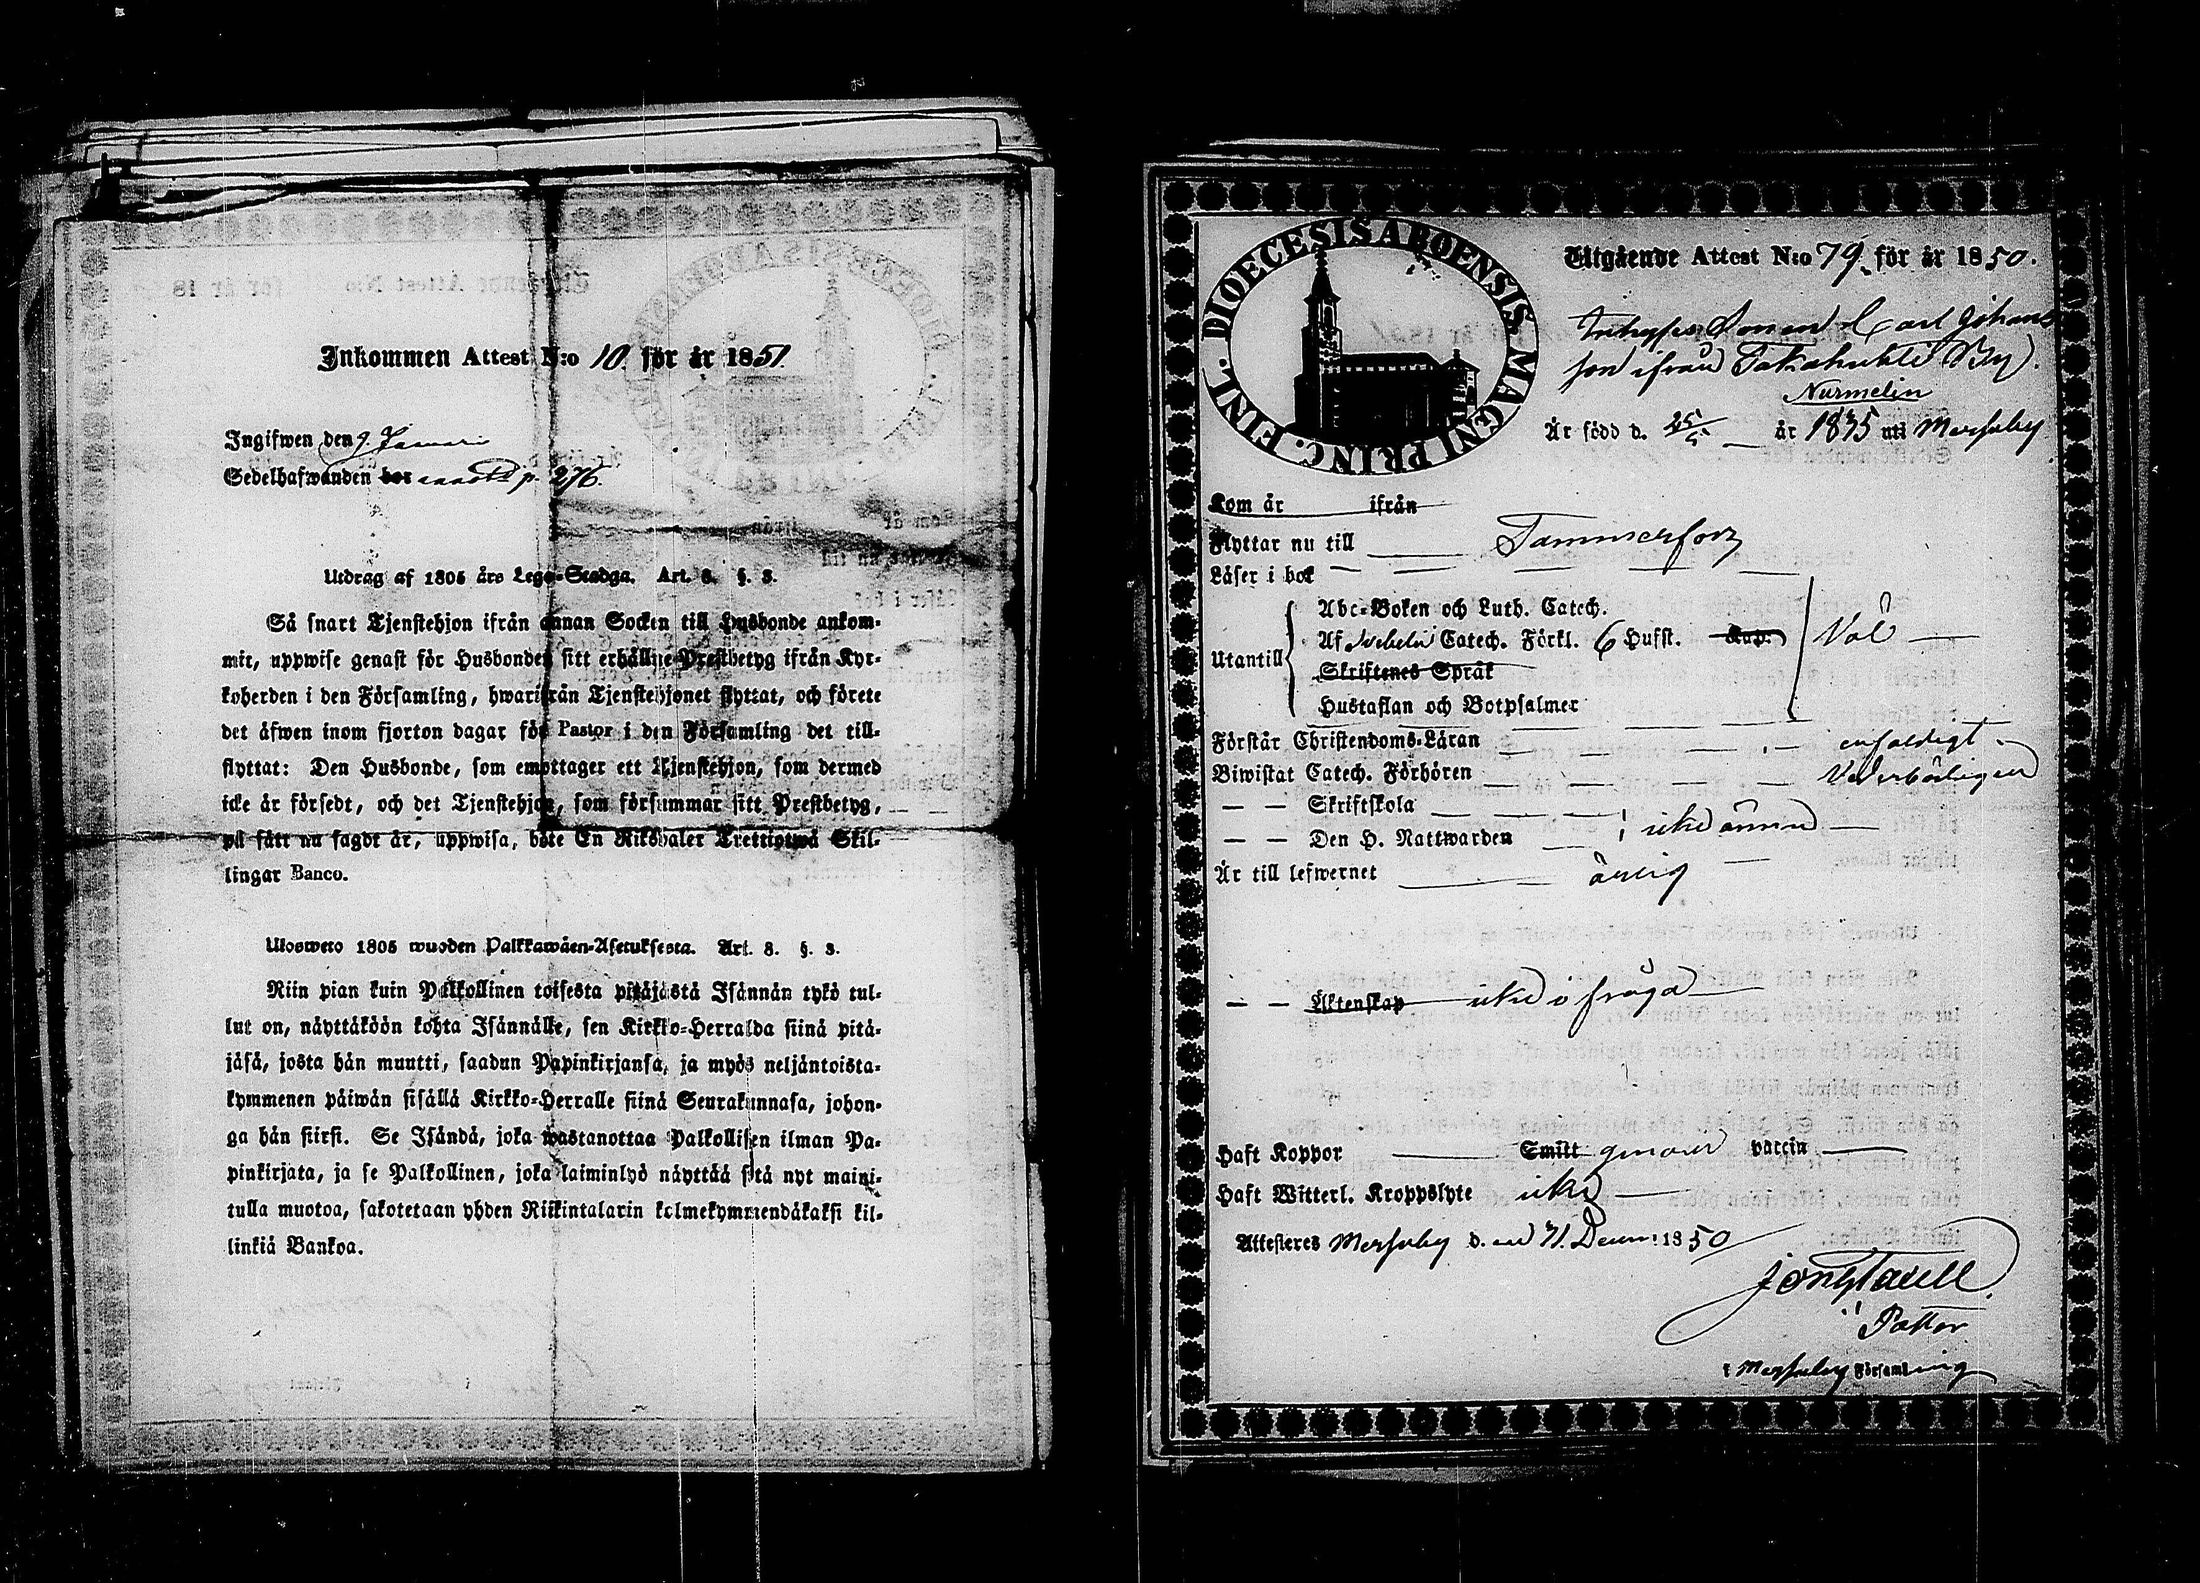 Inkommen Attest N:o 10. för år 1851.
Ingifwen den 9. Januari
Sedelhafwanden bor p. 276.
Utdrag af 1805 års Lego-Stadga. Art. 8. §. 3.
Så snart Tjenstehjon ifrån annan Socken till Husbonde ankom-
mit, uppwise genast för Husbonden sitt erhållne Prestbetyg ifrån Kyr-
koherden i den Församling, hwarifrån Tjenstehjonet flyttat, och förete
det äfwen inom fjorton dagar för Pastor i den Församling det till-
flyttat: Den Husbonde, som emottager ett Tjenstehjon, som dermed
icke är försedt, och det Tjenstehjon, som försummar sitt Prestbetyg,
på sätt nu sagdt är, uppwisa, böte En Riksdaler Trettiotwå Skil-
lingar Banco.
Ulosweto 1805 wuoden Palkkawäen-Asetuksesta. Art. 8. §. 3.
Niin pian kuin Palkollinen toisesta pitäjästä Isännän tykö tul-
lut on, näyttäköön kohta Isännälle, sen Kirkko-Herralda siinä pitä-
jäsä, josta hän muutti, saadun Papinkirjansa, ja myös neljäntoista-
kymmenen päiwän sisällä Kirkko-Herralle siinä Seurakunnasa, johon-
ga hän siirsi. Se Isändä, joka wastanottaa Palkollisen ilman Pa-
pinkirjata, ja se Palkollinen, joka laiminlyö näyttää sitä nyt maini-
tulla muotoa, sakotetaan yhden Riikintalarin kolmekymmendäkaksi kil-
linkiä Bankoa.
DIOECESIS ABOENSIS MAGNI PRINC. FINL.
Utgående Attest N:o 79. för år 1850.
Inhyses Sonen Carl Johans
son ifrån Takahuhti By.
Nurmelin
Är född d. 25/5 år 1835 uti Messuby
Kom år ifrån
Flyttar nu till Tammerfors
Läser i bok
Utantill
Abc-Boken och Luth. Catech.
Af Svebelii Catech. Förkl. 6 Hufst. Kap. Väl
Skriftenes Språk
Hustaflan och Botpsalmer
Förstår Christendoms-Läran enfaldigt
Biwistat Catech. Förhören Vederbörligen
— — Skriftskola
— — Den H. Nattwarden icke ännu
Är till lefwernet ärlig
— — Äktenskap icke i fråga
Haft Koppor Smitt genom vaccin
Haft Witterl. Kroppslyte icke
Attesteres Messuby d. 31. Decem: 1850
Pastor
i Messuby Församling